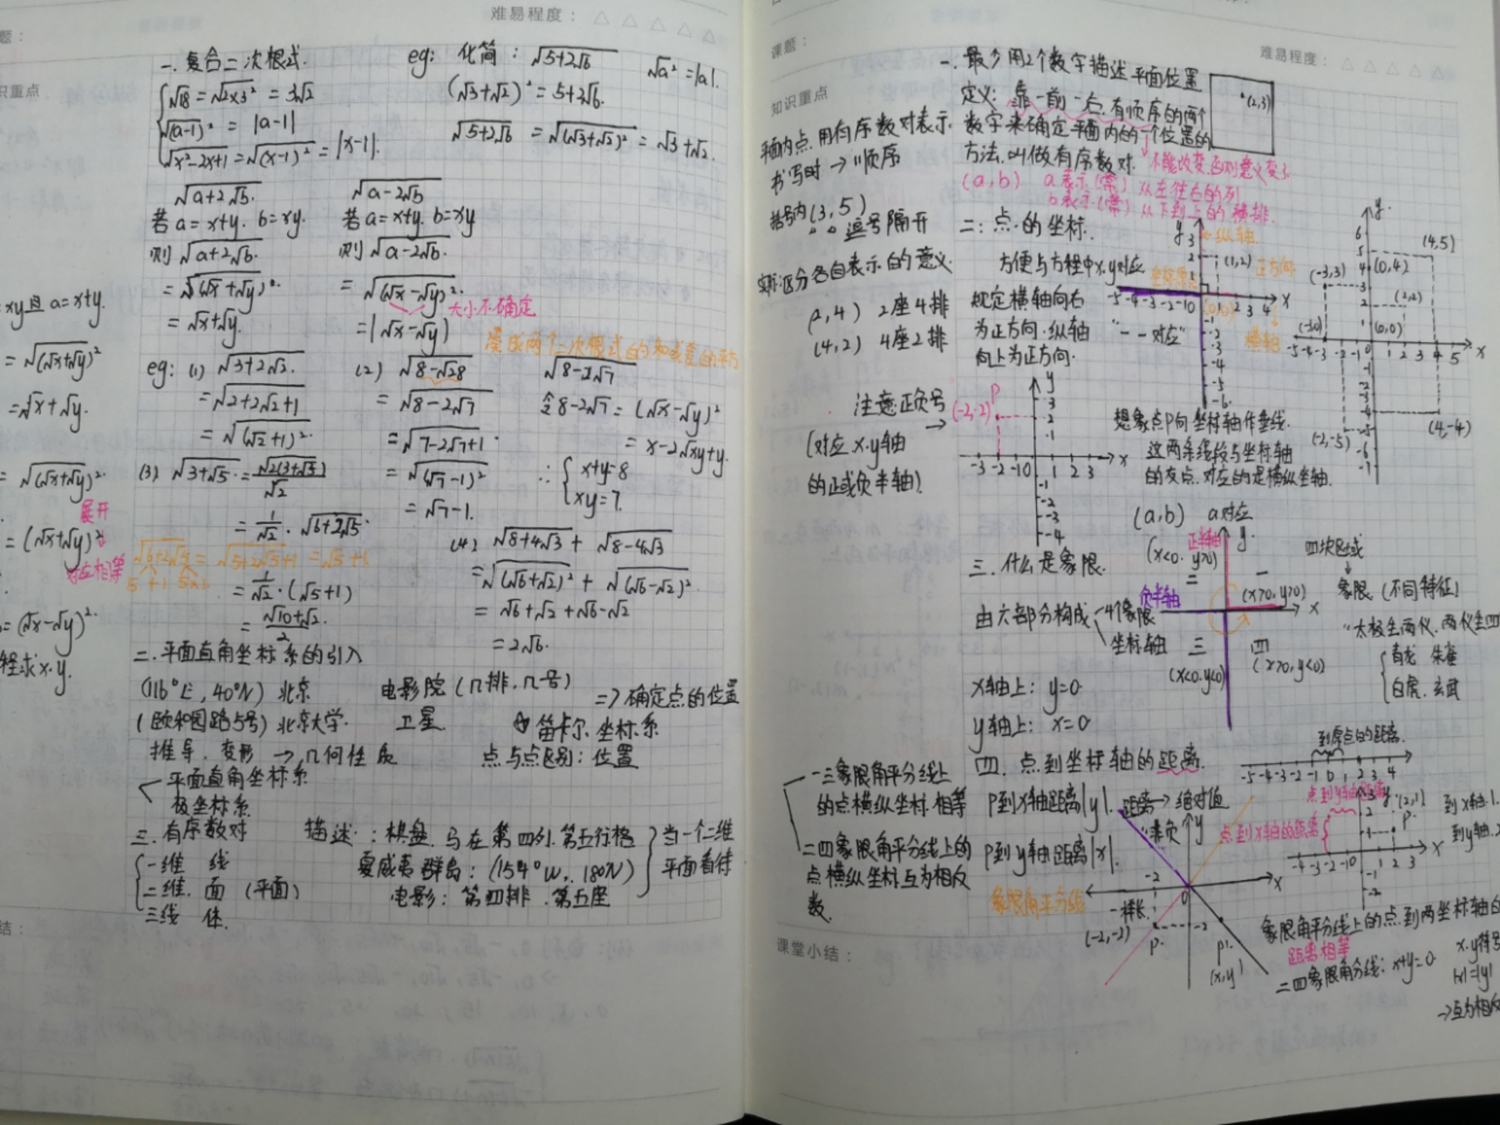 难易程度：△ △ △ △
题：
识重点
一. 复合二次根式.
eg: 化简：√5+2√6
√a² = |a|.
√18 = √2×3² = 3√2
(√3+√2)² = 5+2√6.
√(a-1)² = |a-1|
√5+2√6 = √(√3+√2)² = √3+√2.
√x²-2x+1 = √(x-1)² = |x-1|.
√a+2√b
√a-2√b
若 a=x+y. b=xy.
若 a=x+y. b=xy
则 √a+2√b.
则 √a-2√b.
= √(√x+√y)².
= √(√x-√y)².
大小不确定
= √x+√y.
= |√x-√y|
xy且 a=x+y.
= √(√x+√y)²
= √x+√y.
= √(√x+√y)².
展开
= (√x+√y)²
对应相等
= (√x-√y)².
程求x.y.
eg: (1) √3+2√2.
= √2+2√2+1
= √(√2+1)².
(2) √8-√28
= √8-2√7
= √7-2√7+1.
= √(√7-1)²
= √7-1.
√8-2√7
8-2√7 = (√x-√y)²
= x-2√xy+y.
∴ x+y=8
xy=7.
(3) √3+√5 = √2(3+√5)/√2
= 1/√2 · √6+2√5.
√6+2√5 = √5+2√5+1 = √5+1
5+1 5×1
= 1/√2 · (√5+1)
= √10+√2 / 2
(4) √8+4√3 + √8-4√3
= √(√6+√2)² + √(√6-√2)²
= √6+√2+√6-√2
= 2√6.
二. 平面直角坐标系的引入
(116°E, 40°N) 北京
电影院 (几排, 几号)
=> 确定点的位置
(颐和园路5号) 北京大学.
卫星
笛卡尔 坐标系
推导. 变形 → 几何性质
点与点区别：位置
平面直角坐标系
极坐标系
三. 有序数对
描述：棋盘. 马在第四列. 第五行格
当一个二维
平面看待
一维 线
夏威夷群岛：(154°W, 180N)
二维. 面 (平面)
电影：第四排. 第五座
三线 体.
结：
课题：
难易程度：△ △ △ △ △
知识重点
一. 最少用2个数字描述平面位置
(2,3)
定义：靠一前一点有顺序的两个
数字来确定平面内的一个位置的
方法. 叫做有序数对.
不能改变,否则意义变了
(a,b) a表示(常) 从左往右的列
b表示(常) 从下到上的横排.
平面内点. 用有序数对表示.
书写时 → 顺序
括号内 (3,5)
逗号隔开
实际区分各自表示的意义.
(2,4) 2座4排
(4,2) 4座2排
二：点的坐标.
方便与方程中x.y对应
规定横轴向右
为正方向. 纵轴
向上为正方向.
"一一对应"
y
纵轴
(1,2)
正方向
-5-4-3-2-10
x
(0,0)
横轴
y.
(4,5)
(-3,3)
(0,4)
(2,2)
(-3,0)
(0,0)
-5-4-3 -2-1 0 1 2 3 4 5 x
(-2,-5)
(4,-4)
注意正负号
(对应 x.y轴
的正或负半轴)
(-2,2)
P
y
-3-2-10 1 2 3 x
想象点P向坐标轴作垂线.
这两条线段与坐标轴
的交点. 对应的是横纵坐轴.
(a,b) a对应
三. 什么是象限.
由六部分构成
4个象限
坐标轴
x轴上：y=0
y轴上：x=0
正半轴
y.
(x<0. y>0)
二
一
(x>0, y>0)
负半轴
x
三
四
(x<0.y<0)
(x>0,y<0)
四块区域
象限 (不同特征)
"太极生两仪. 两仪生四
青龙 朱雀
白虎. 玄武
四. 点到坐标轴的距离.
P到x轴距离|y|.
距离 → 绝对值
非负
P到y轴距离|x|.
到原点的距离.
-5-4-3-2-1 0 1 2 3 4
点到y轴距离
点到x轴的距离
(2,1)
P
-4-3-2-10 1 2 3 x
到x轴:1.
到y轴:2
一三象限角平分线上
的点横纵坐标. 相等
二四象限角平分线上的
点横纵坐标互为相反
数.
象限角平分线
y
x
-2
0
一样长.
(-2,-2)
P.
-2
P'.
(x,y)
象限角平分线上的点. 到两坐标轴的
距离相等
二四象限角分线：x+y=0
|x|=|y|
→互为相反
课堂小结：